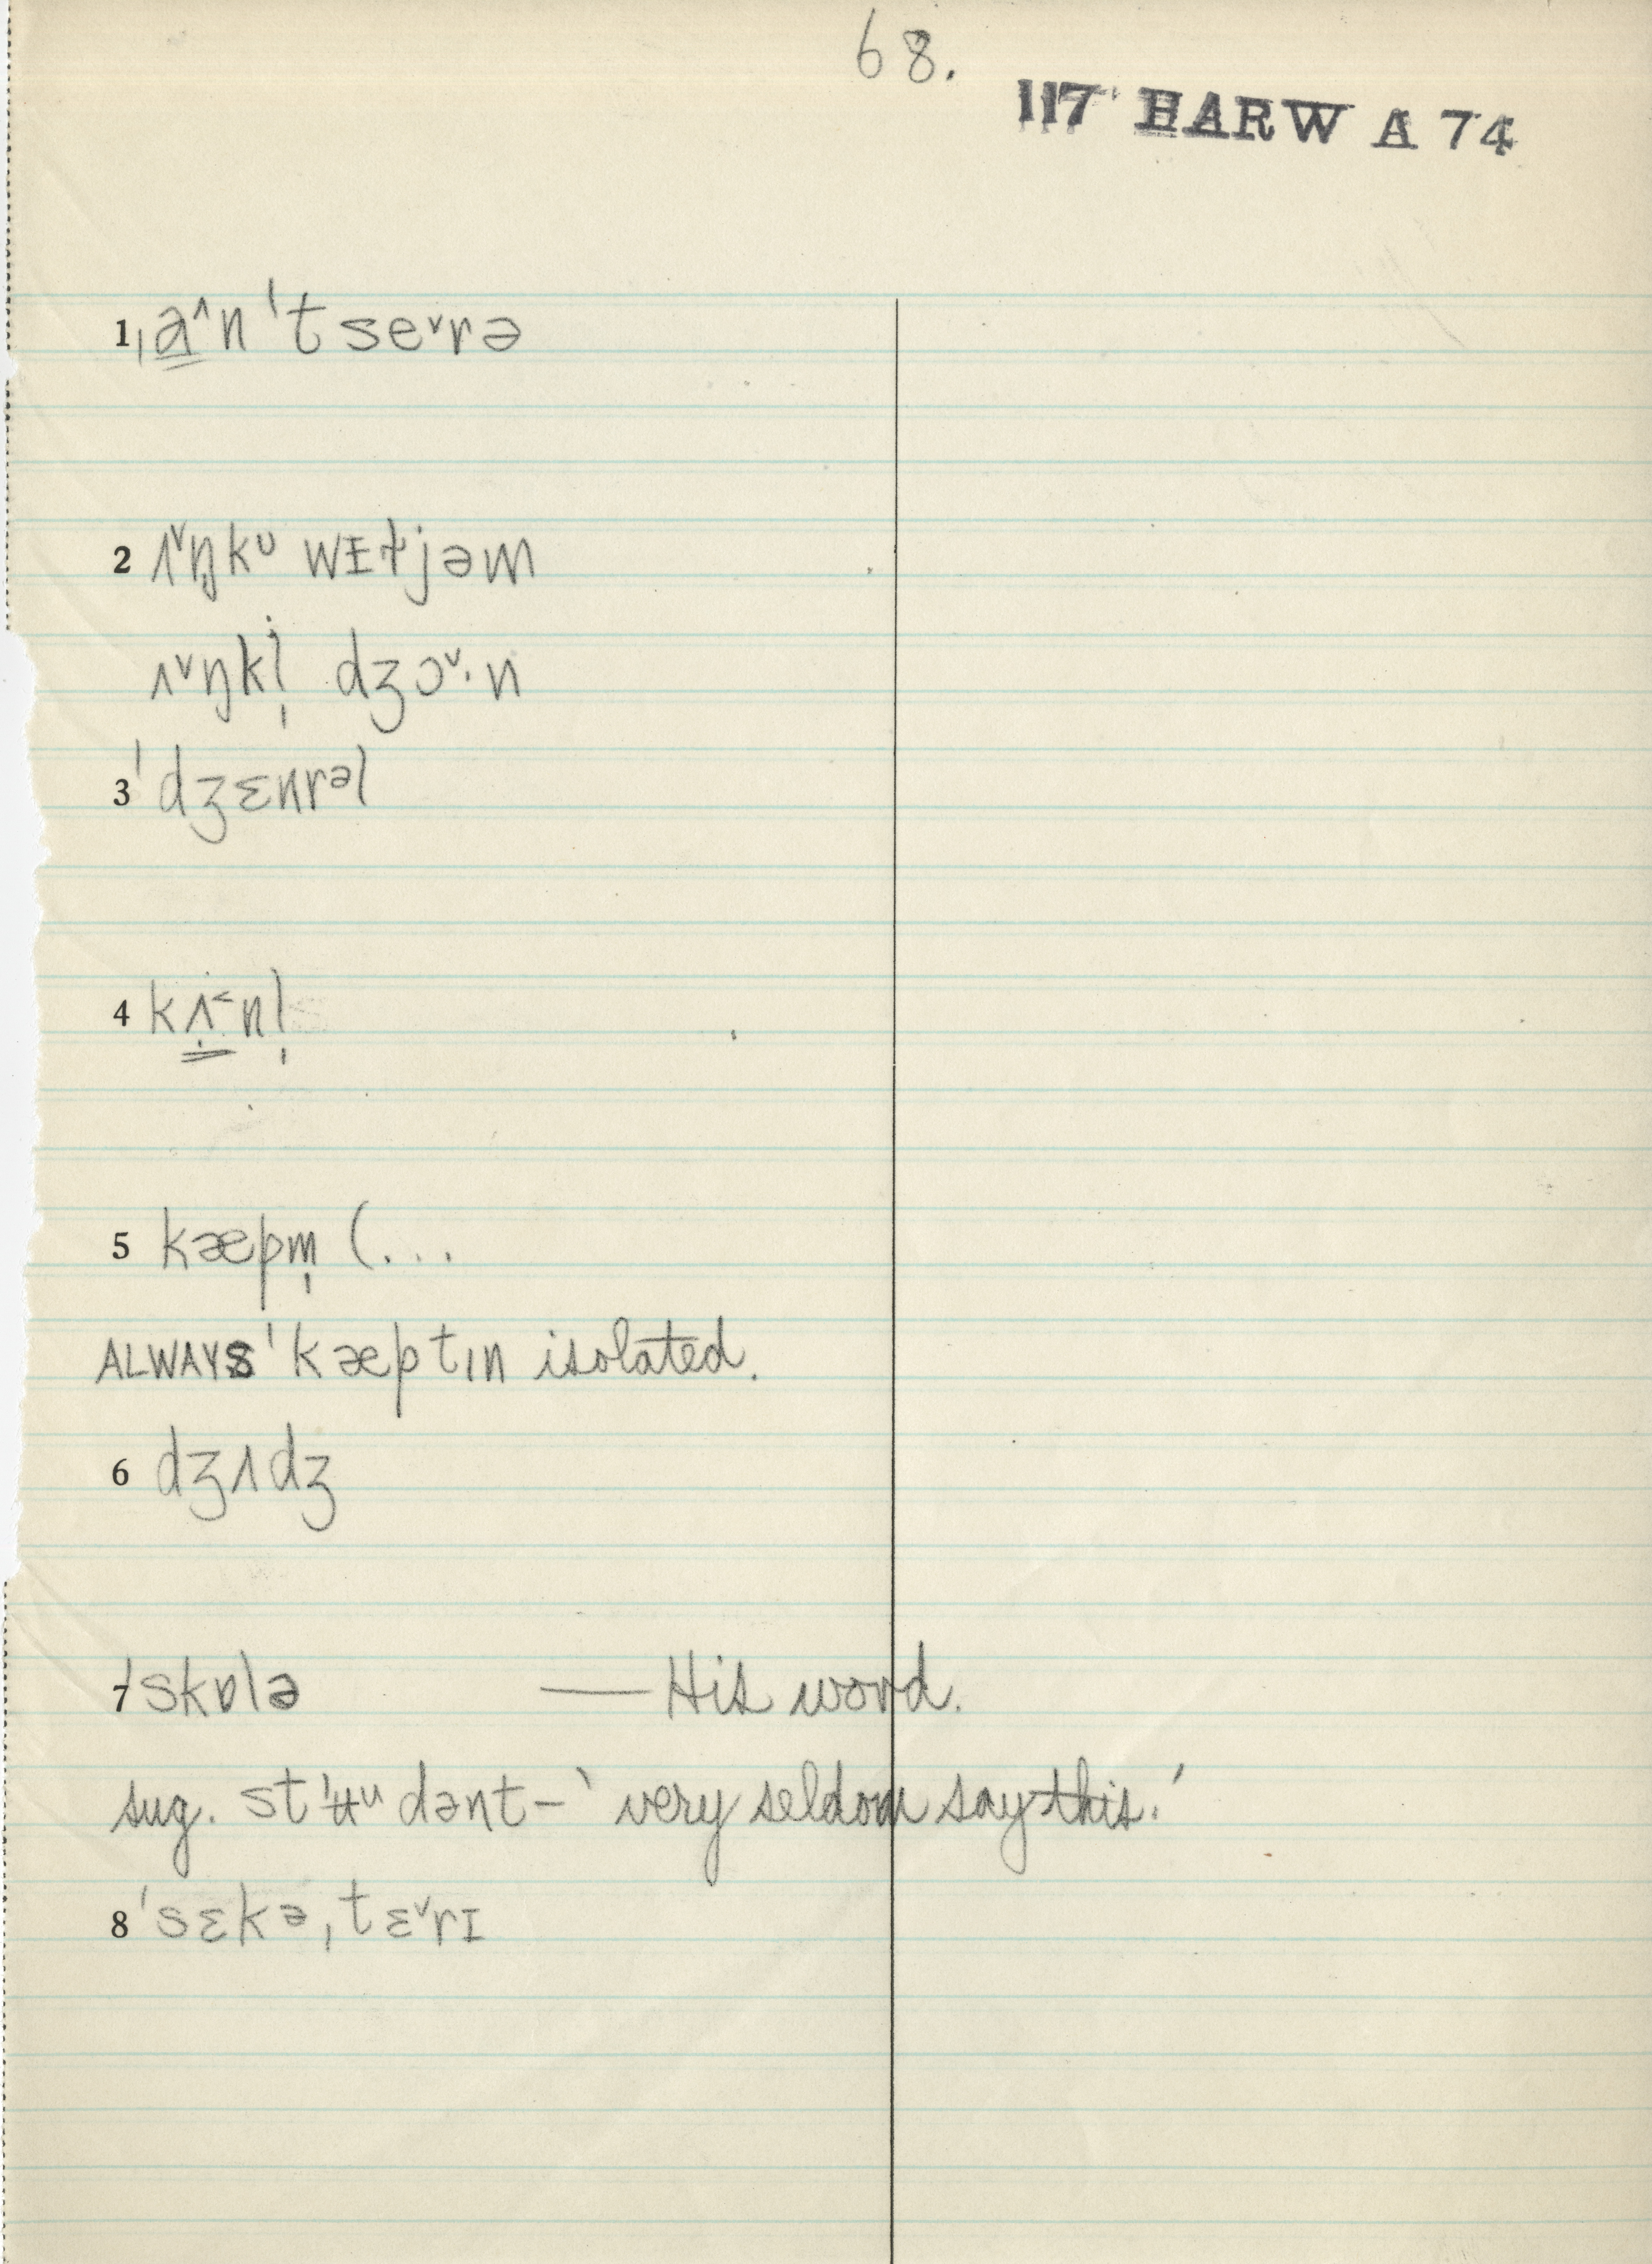 68.
117 HARW A 74
1 ˌa̳^n ˈt seᵛrə
2 ʌᵛŋkᵘ wɪɫjəm
ʌᵛŋkl̩ dʒɔᵛ·n
3 ˈdʒɛnrᵊl
4 kʌ̳˂nl̩
5 kæpm̩ (...
ALWAYS ˈkæptɪn isolated.
6 dʒʌdʒ
7 ˈskɒlə — His word.
sug. stˈʉᵘdənt – ‘very seldom say this.’
8 ˈsɛkəˌtɛᵛrɪ